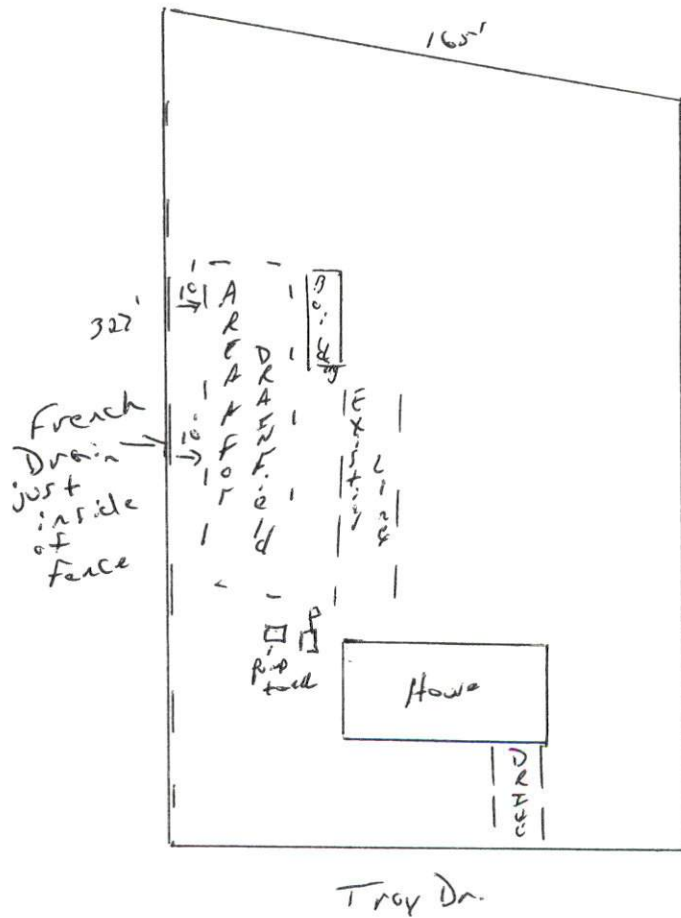 165'
327'
10'
10'
AREA FOR
DRAINField
Building
Existing
Line
French
Drain
just
inside
of
Fence
P
pump
tank
House
DRIVE
Troy Dr.